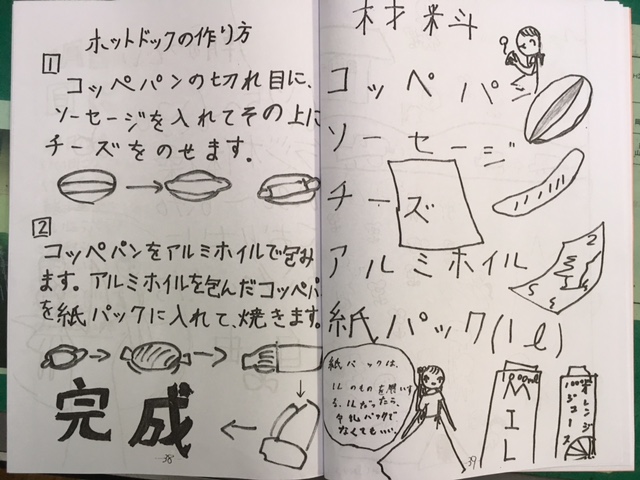 ホットドックの作り方
1
コッペパンの切れ目に、
ソーセージを入れてその上に
チーズをのせます。
2
コッペパンをアルミホイルで包み
ます。アルミホイルを包んだコッペパ
を紙パックに入れて、焼きます。
完成
38
材料
コッペパン
ソーセージ
チーズ
アルミホイル
紙パック(1ℓ)
紙パックは、
1Lのものを用いす
る。1Lだったら、
牛乳パックで
なくてもいい。
1000ml
MIL
1000ml
オレンジ
ジュース
39